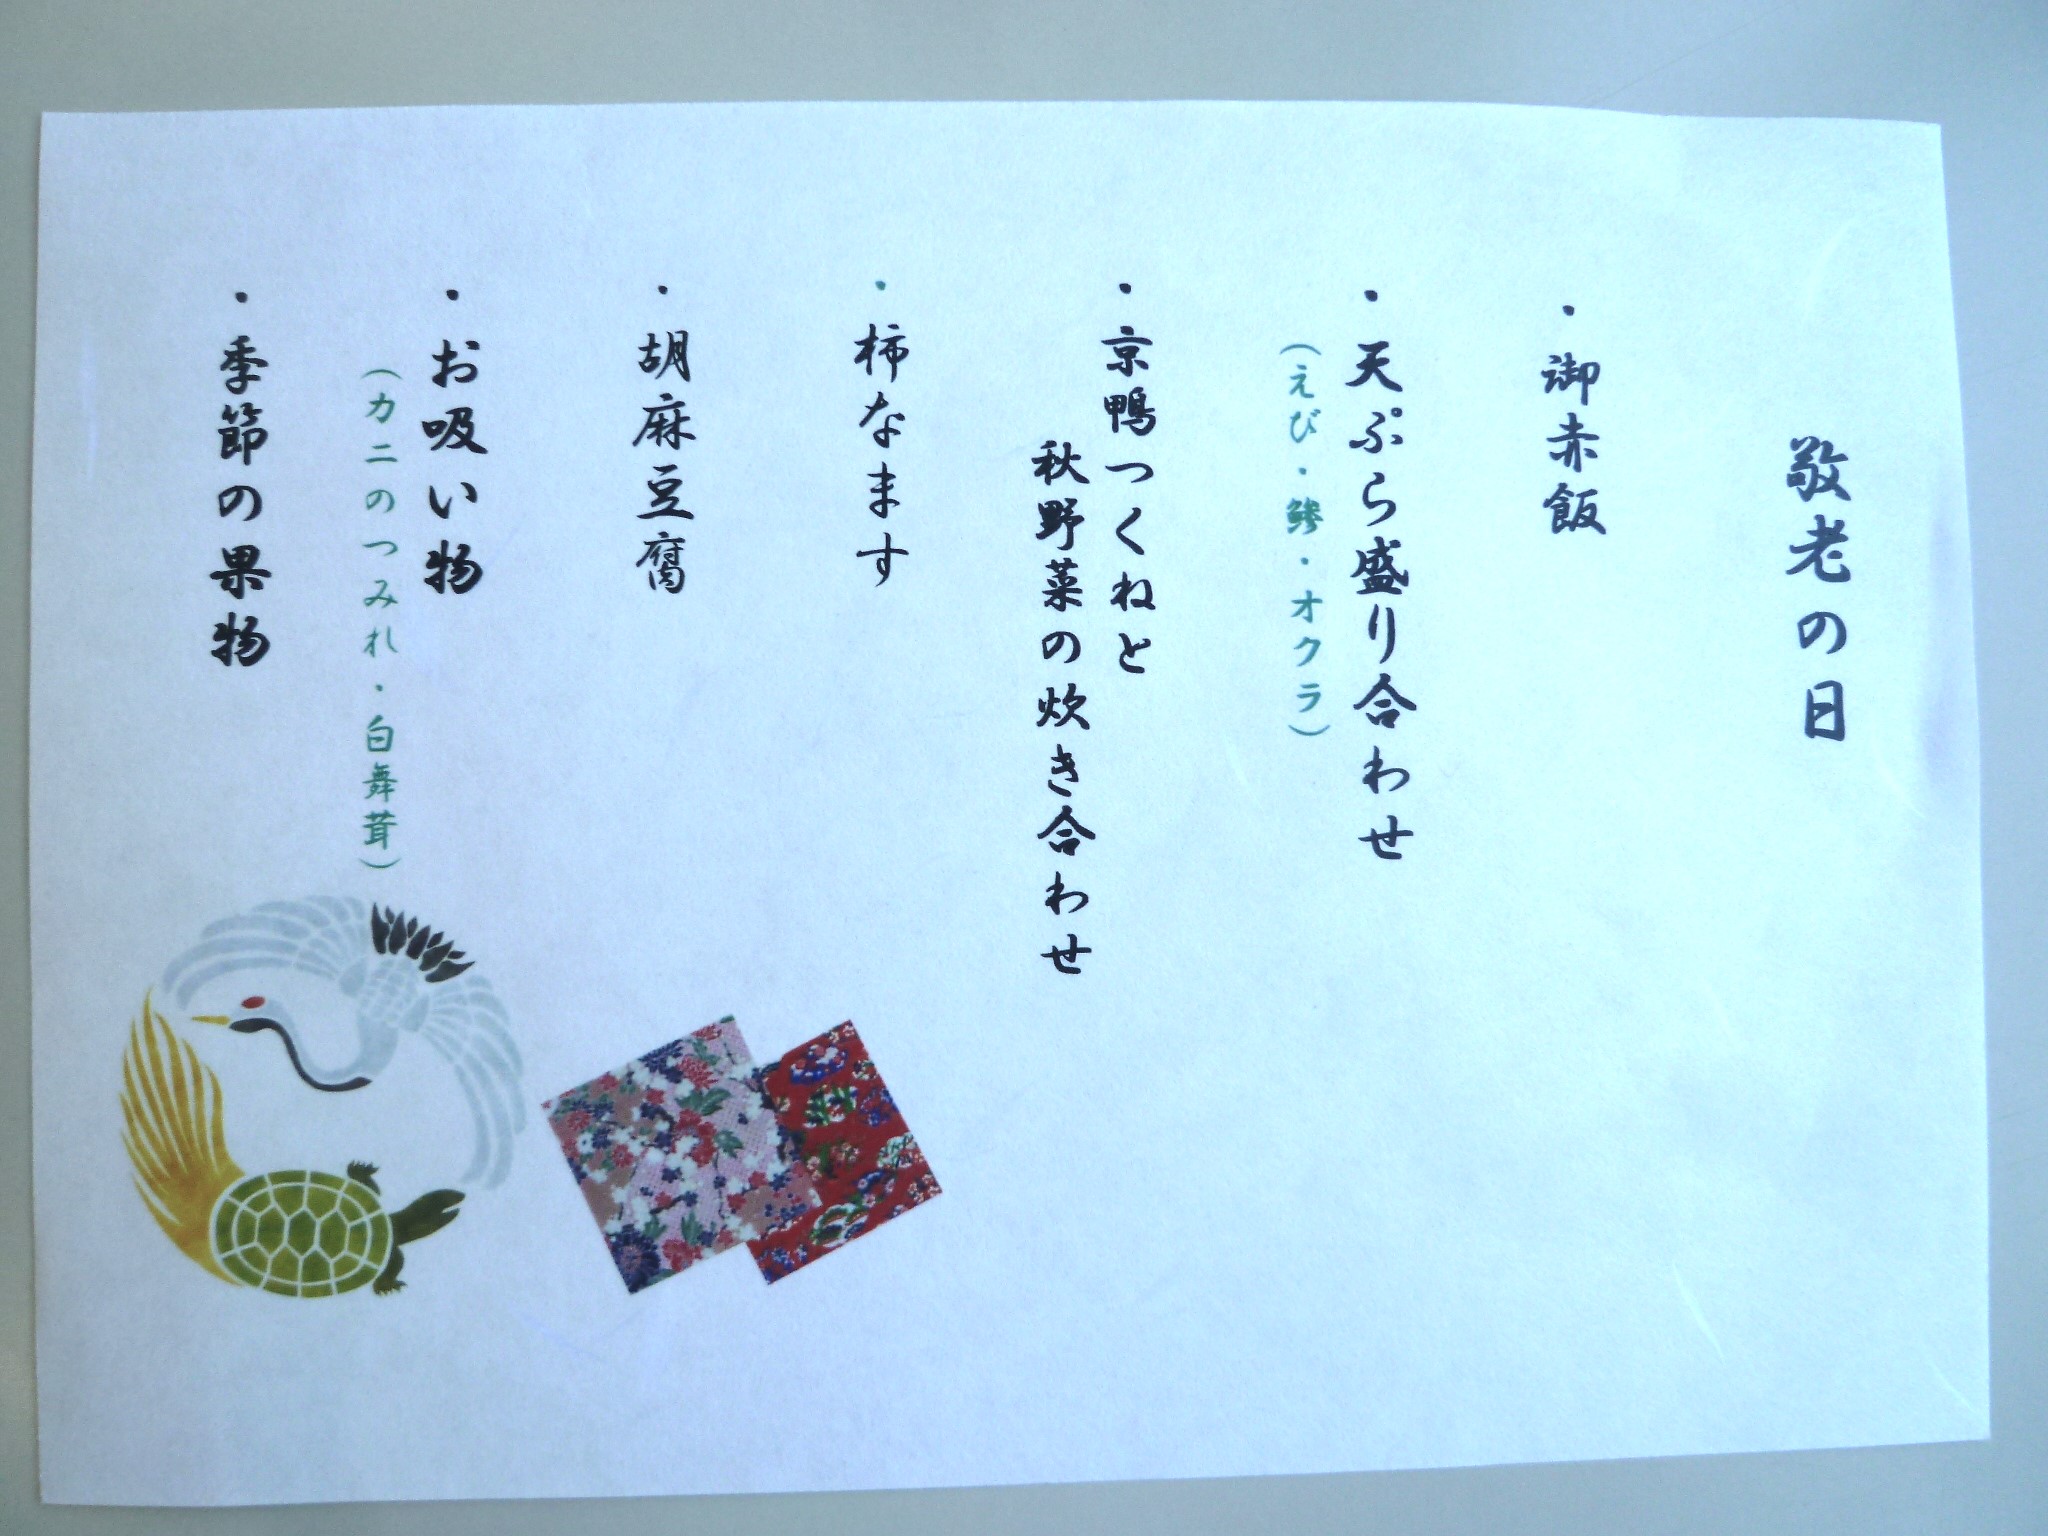 敬老の日
・御赤飯
・天ぷら盛り合わせ
(えび・鯵・オクラ)
・京鴨つくねと
秋野菜の炊き合わせ
・柿なます
・胡麻豆腐
・お吸い物
(カニのつみれ・白舞茸)
・季節の果物